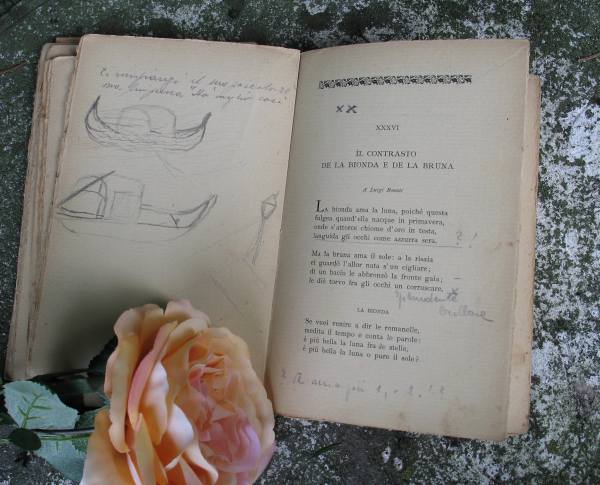 E rimpiangi il suo
ma
xx
XXXVI
IL CONTRASTO
DE LA BIONDA E DE LA BRUNA
A Luigi
LA bionda ama la luna, poiché questa
fulgea quand'ella nacque in primavera,
onde s'attorce chiome d'oro in testa,
languida gli occhi come azzurra sera. ?!
Ma la bruna ama il sole: a la risaia
ei guardò l'allor nata s'un cigliare;
di un bacio le abbronzò la fronte gaia;
le diè torvo fra gli occhi un corruscare.
splendente
brillare
LA BIONDA
Se vuoi venire a dir le romanelle,
medita il tempo e conta le parole:
è più bella la luna fra le stelle,
è più bella la luna o pure il sole?